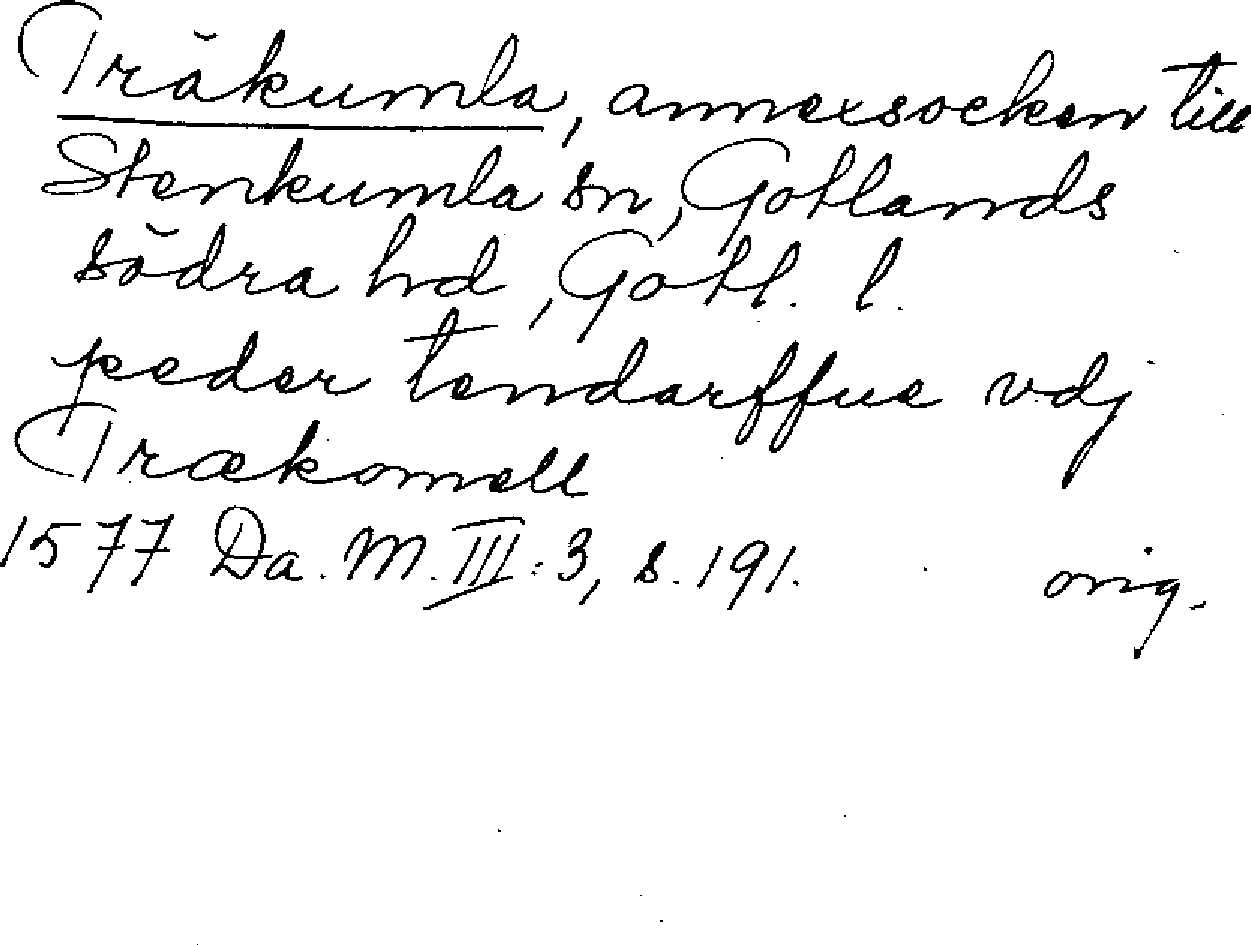 Träkumla, annexsocken till
Stenkumla sn, Gotlands
södra hd, Gotl. l.
peder tendarffue vdj
Trækomell
1577 Da. M. III: 3, s. 191. orig.